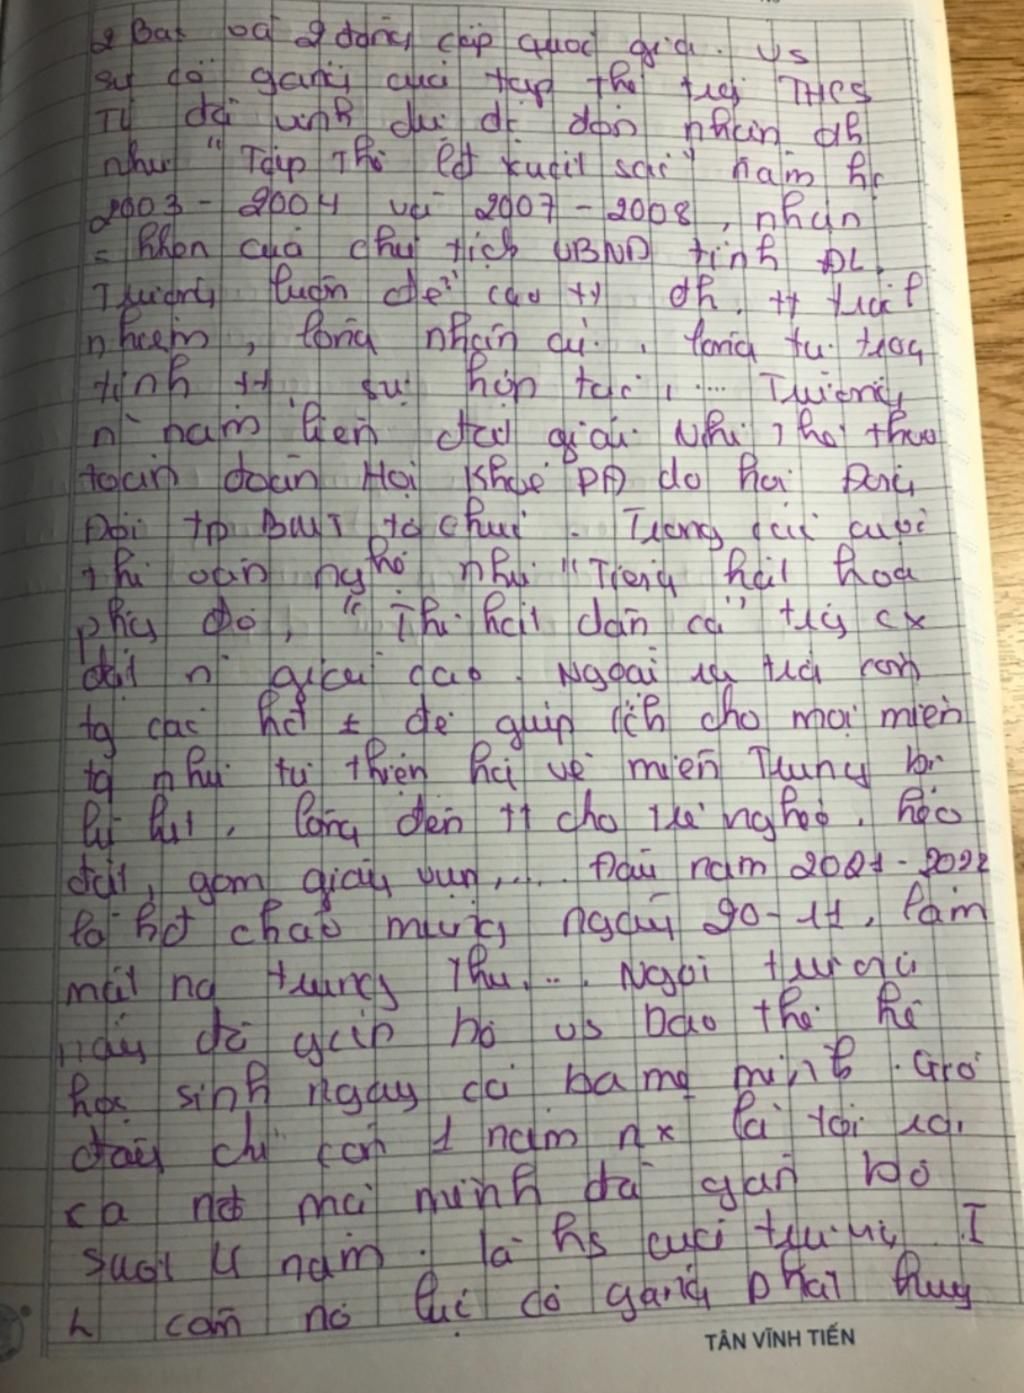 2 Bạc và 2 đồng cấp quốc gia. Vs
sự cố gắng của tập thể trg THCS
TV đã vinh dự đc đón nhận dh
như "Tập Thể LĐ xuất sắc" năm hc
2003 - 2004 và 2007 - 2008, nhận
= khen của chủ tịch UBND tỉnh ĐL.
Trường luôn đề cao tt dh, tt trách
nhiệm, lòng nhân ái, lòng tự trọng
tính tt sự hợp tác, .... Trường
n` năm liền đạt giải Nhì, thể thao
toàn đoàn Hội khoẻ PĐ do hội Đồng
Đội tp BMT tổ chức. Trong các cuộc
thi văn nghệ như "Tiếng hát hoa
phg đỏ, "Thi hát dân ca" trg cx
đạt n` giải cao. Ngoài ra trg còn
tg các hđ ± để giúp ích cho mọi miền
tq như từ thiện hg về miền Trung bị
lũ lụt, lồng đèn tt cho trẻ nghèo, heo
đất, gom giấy vụn,.... Đầu năm 2021 - 2022
là hđ chào mừng ngày 20 - 11, làm
mặt nạ trung thu.... Ngôi trường
này đã gắn bó vs bao thế hệ
học sinh ngay cả ba mẹ mình. Giờ
đây chỉ còn 1 năm nx là tôi xa
mà mình đã gắn bó
suốt 4 năm. là hs của trường, I
h cần nỗ lực cố gắng phát huy
TÂN VĨNH TIẾN